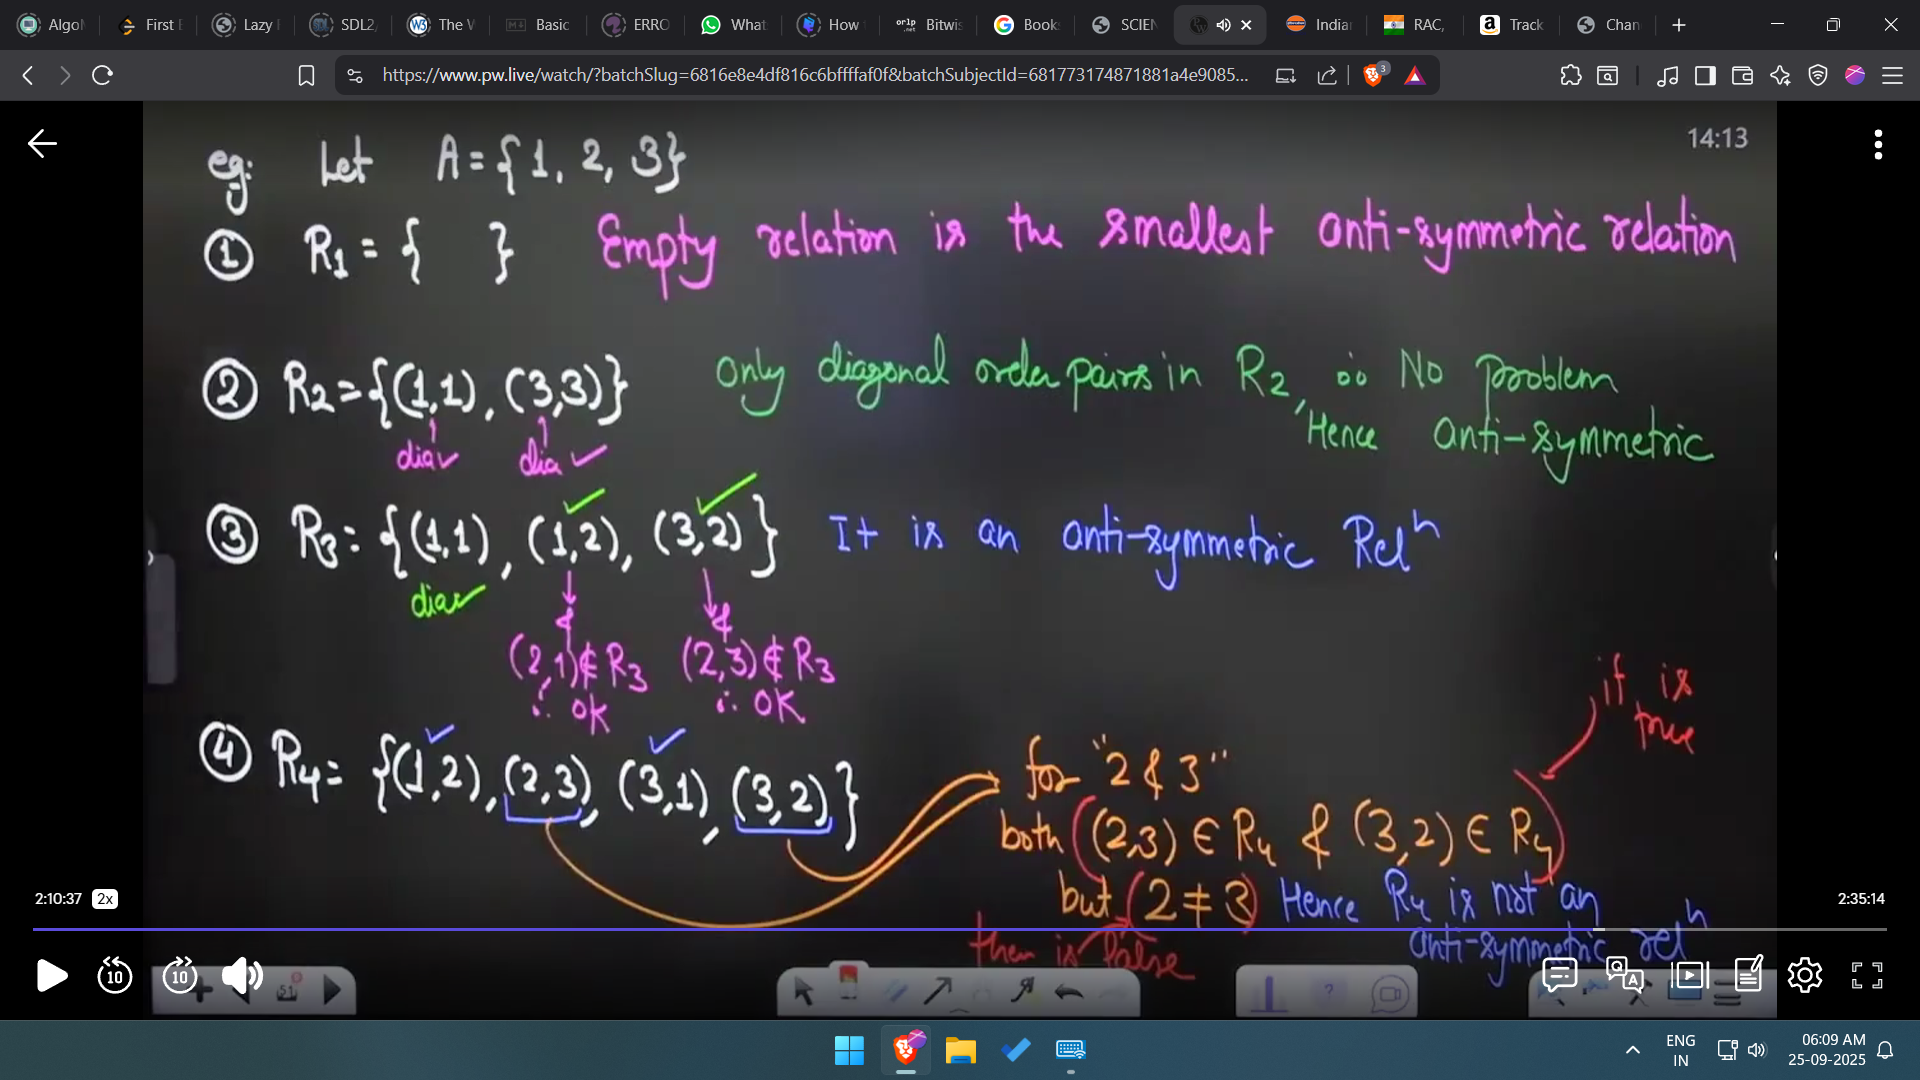 Algo
First
Lazy
SDL2
The W
Basic
ERRO
What
How
Bitwis
Book
SCIEN
India
RAC,
Track
Chan
https://www.pw.live/watch/?batchSlug=6816e8e4df816c6bffffaf0f&batchSubjectId=681773174871881a4e9085...
3
14:13
eg: Let A = {1, 2, 3}
① R1 = { } Empty relation is the smallest anti-symmetric relation
② R2 = {(1,1), (3,3)} Only diagonal order pairs in R2, ∴ No problem
Hence anti-symmetric
dia✓ dia ✓
③ R3 = {(1,1), (1,2), (3,2)} It is an anti-symmetric Relⁿ
dia✓
(2,1)∉R3 (2,3)∉R3
∴ OK ∴ OK
if is
true
④ R4 = {(1,2), (2,3), (3,1), (3,2)}
for "2 & 3"
both (2,3) ∈ R4 & (3,2) ∈ R4
but (2 ≠ 3) Hence R4 is not an
anti-symmetric relⁿ
then is false
2:10:37 2x
2:35:14
10 10
51
ENG
IN
06:09 AM
25-09-2025